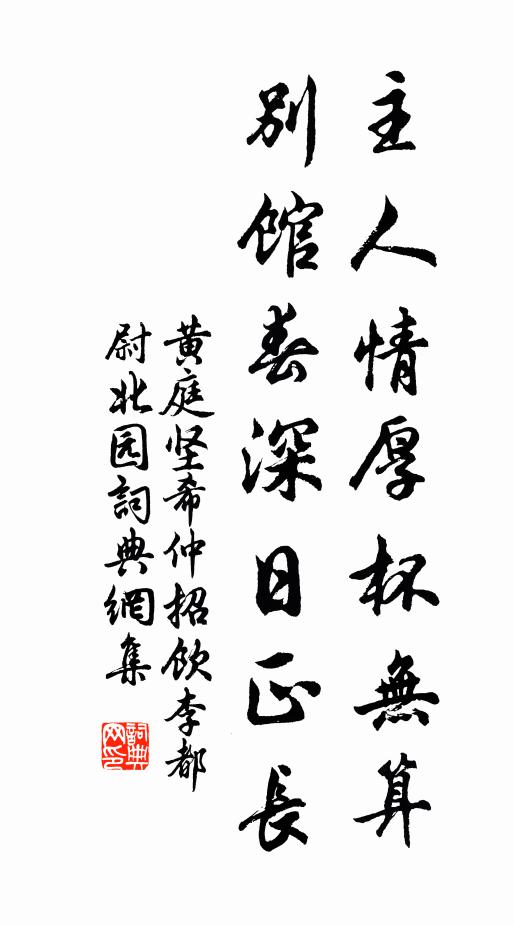 主人情厚杯無算
別館春深日正長
黄庭坚希仲招飲李都
尉北园詞典網集
詞典网印